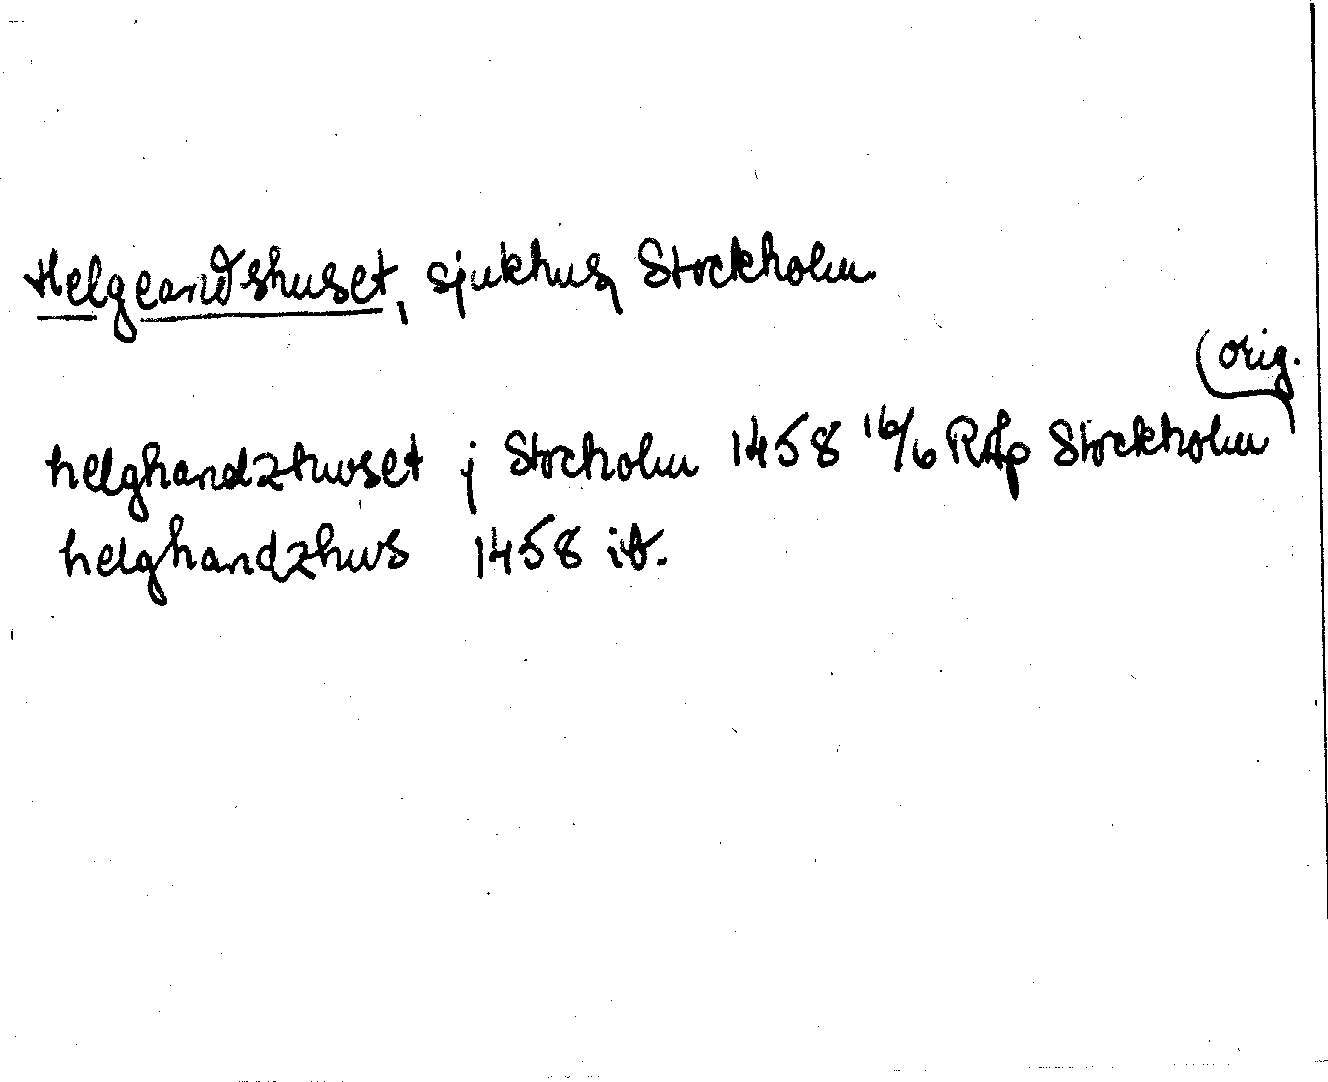 Helgeandshuset, sjukhus, Stockholm.
(orig.
helghandzhuset j Stocholm 1458 16/6 RAp Stockholm
helghandzhus 1458 ib.